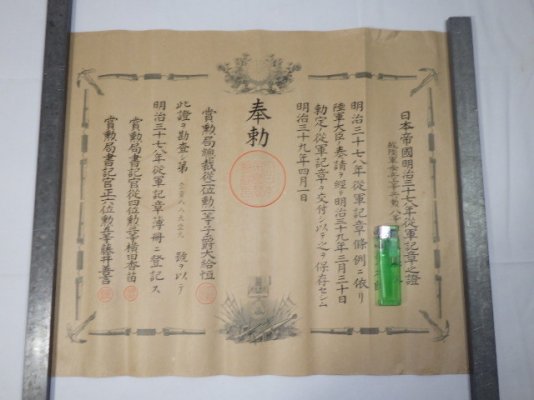 日本帝國明治三十七八年從軍記章之證
明治三十七八年從軍記章條例ニ依リ
陸軍大臣ノ奏請ヲ經テ明治三十九年三月三十日
勅定ノ從軍記章ヲ交付シ以テ之ヲ保存セシム
明治三十九年四月一日
奉勅
賞勲局總裁從二位勲一等子爵大給恒
此證ヲ勘査シ第 號ヲ以テ
明治三十七八年從軍記章簿册ニ登記ス
賞勲局書記官從四位勲三等横田香苗
賞勲局書記官正六位勲五等藤井善言